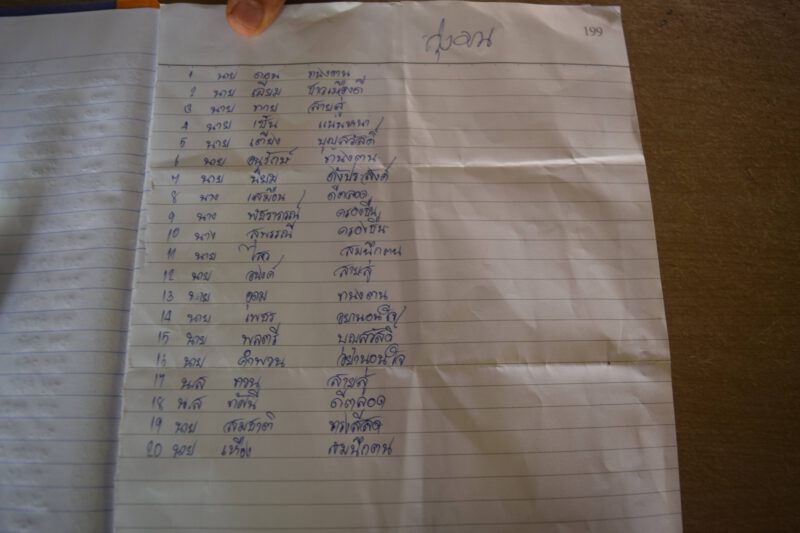 199
1 นาย ดอน ทนงตน
2 นาย เลียม ชาวเมืองดี
3 นาย ทาย สายสู่
4 นาย เขียน แน่นหนา
5 นาย เตียง บุญสวัสดิ์
6 นาย อนุรักษ์ ทนงตน
7 นาย นิยม ดังประสงค์
8 นาง เสมือน ดีตลอด
9 นาง พัชราภรณ์ ครองชื่น
10 นาง สุพรรณี ครองชื่น
11 นาย ไสว สมนึกตน
12 นาย สายสู่
13 นาย อุดม ทนงตน
14 นาย เพชร อย่านอนใจ
15 นาย พลตรี บุญสวัสดิ์
16 นาย คำพวน อย่านอนใจ
17 น.ส ทวน สายสู่
18 น.ส ทัศนี ดีตลอด
19 นาย สมชาติ
20 นาย เหือง สมนึกตน